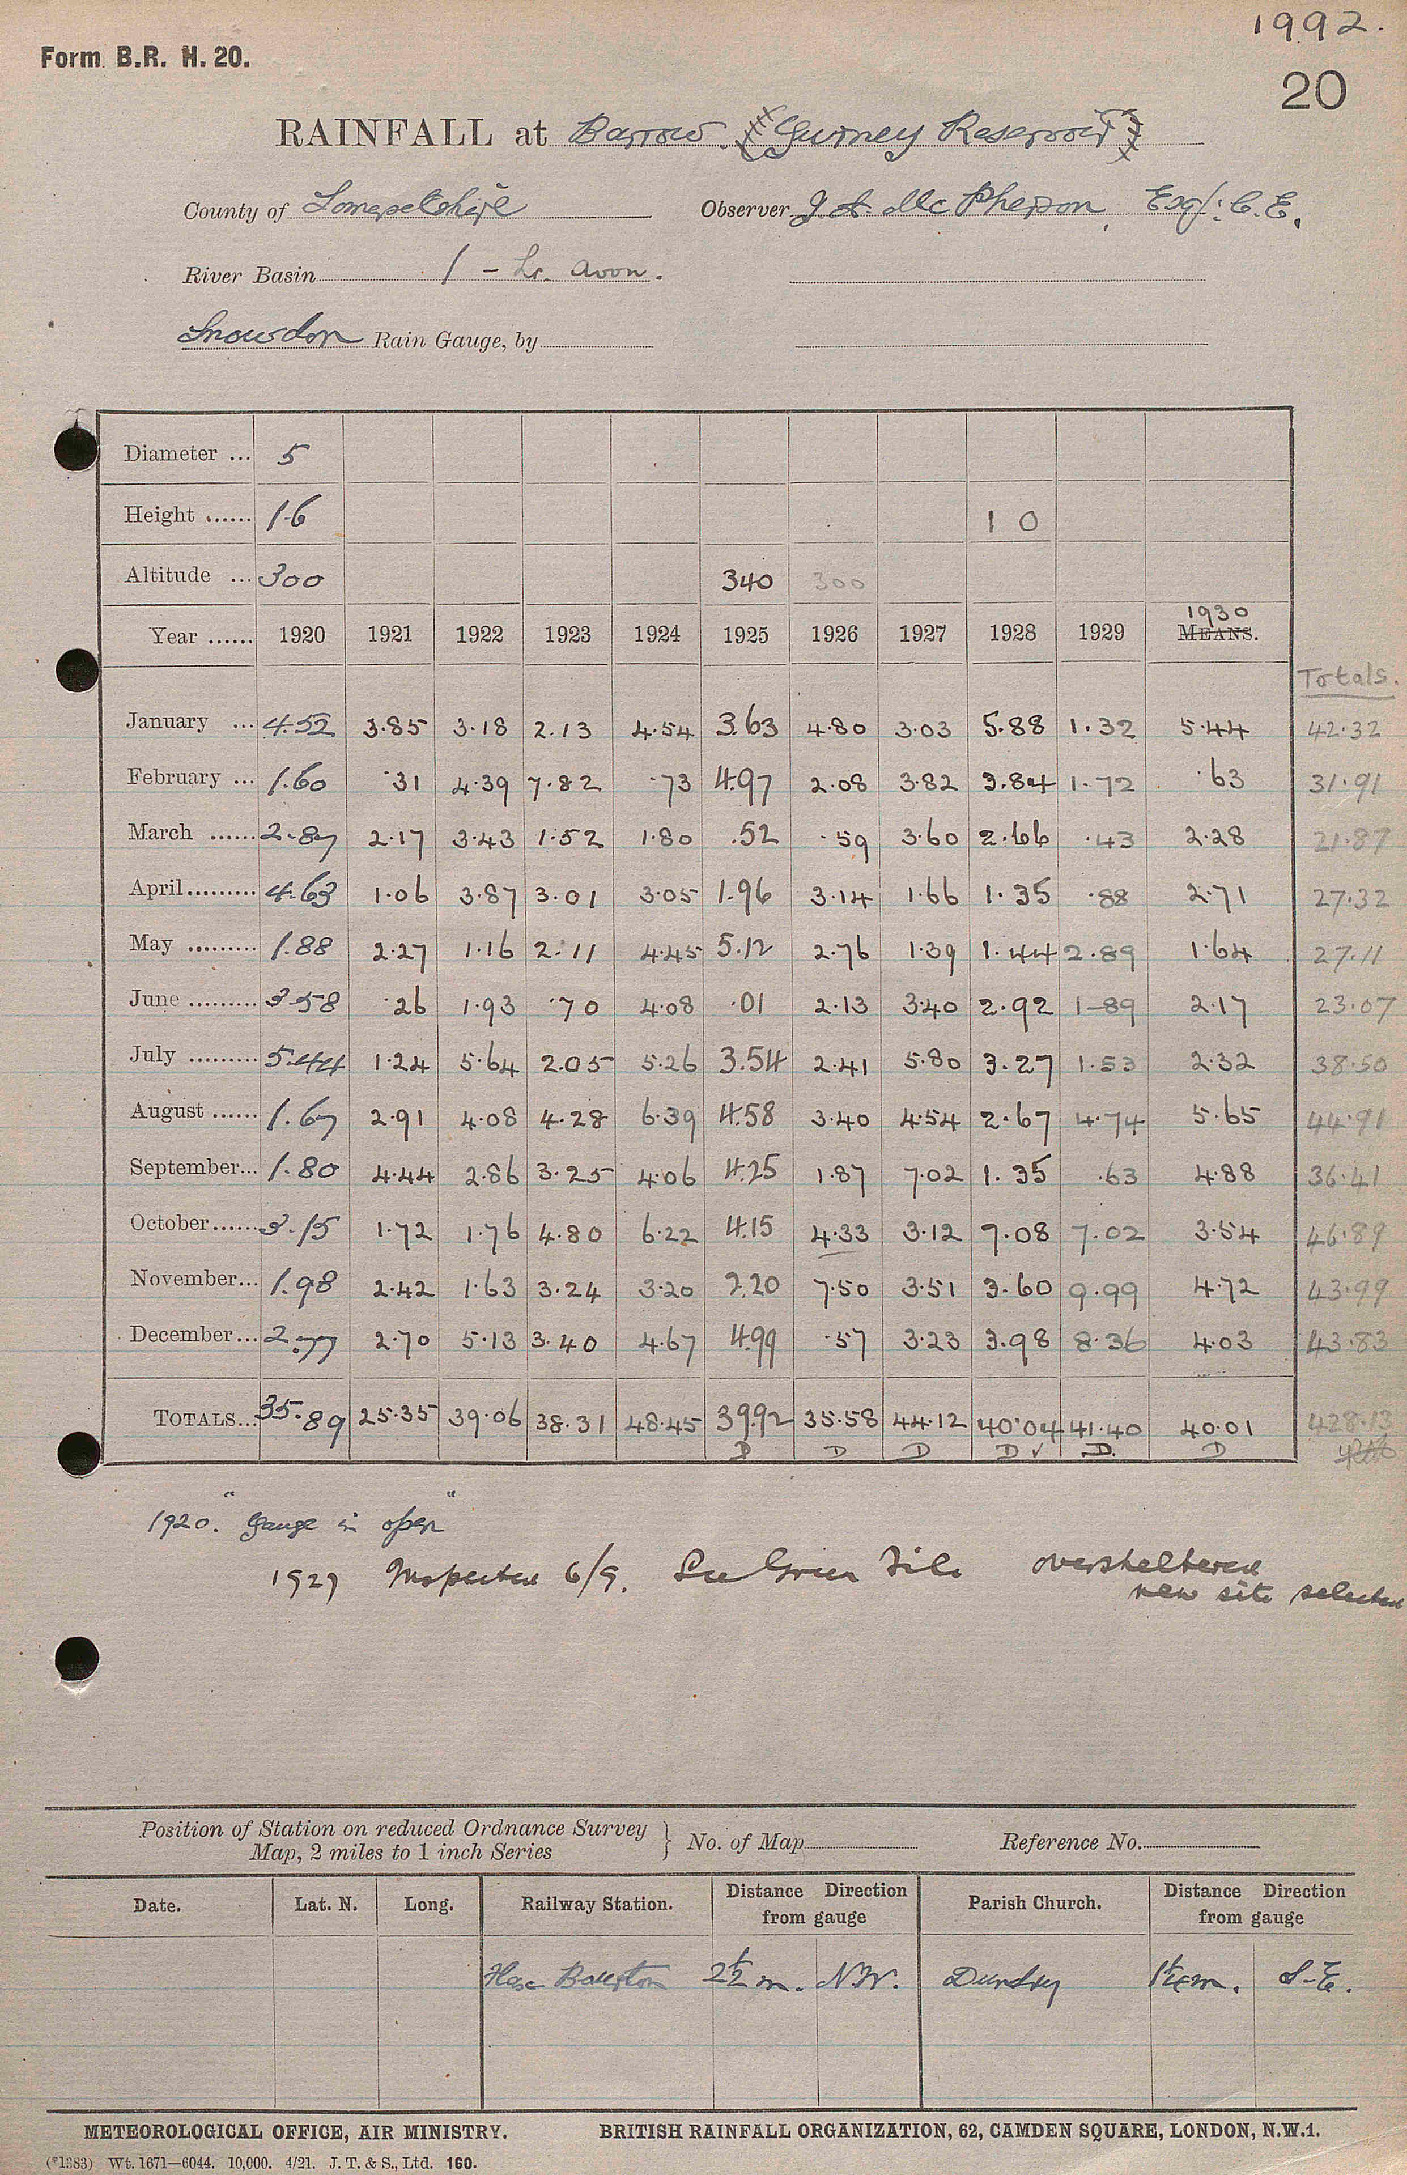 1992.
Form B.R. H. 20.
20
RAINFALL at Barrow. (Gurney Reservoir)
County of Somersetshire Observer J A McPherson, Esq: C.E.
River Basin 1 - Lr. Avon.
Snowdon Rain Gauge, by
Diameter ... 5
Height ...... 1.6 1 0
Altitude ... 300 340 300
1930
Year ...... 1920 1921 1922 1923 1924 1925 1926 1927 1928 1929 MEANS.
Totals.
January ... 4.52 3.85 3.18 2.13 4.54 3.63 4.80 3.03 5.88 1.32 5.44 42.32
February ... 1.60 .31 4.39 7.82 .73 4.97 2.08 3.82 3.84 1.72 .63 31.91
March ...... 2.87 2.17 3.43 1.52 1.80 .52 .59 3.60 2.66 .43 2.28 21.87
April ......... 4.63 1.06 3.87 3.01 3.05 1.96 3.14 1.66 1.35 .88 2.71 27.32
May ......... 1.88 2.27 1.16 2.11 4.45 5.12 2.76 1.39 1.44 2.89 1.64 27.11
June ......... 3.58 .26 1.93 .70 4.08 .01 2.13 3.40 2.92 1-89 2.17 23.07
July ......... 5.44 1.24 5.64 2.05 5.26 3.54 2.41 5.80 3.27 1.53 2.32 38.50
August ...... 1.67 2.91 4.08 4.28 6.39 4.58 3.40 4.54 2.67 4.74 5.65 44.91
September... 1.80 4.44 2.86 3.25 4.06 4.25 1.87 7.02 1.35 .63 4.88 36.41
October...... 3.15 1.72 1.76 4.80 6.22 4.15 4.33 3.12 7.08 7.02 3.54 46.89
November... 1.98 2.42 1.63 3.24 3.20 2.20 7.50 3.51 3.60 9.99 4.72 43.99
December... 2.77 2.70 5.13 3.40 4.67 4.99 .57 3.23 3.98 8.36 4.03 43.83
TOTALS... 35.89 25.35 39.06 38.31 48.45 39.92 35.58 44.12 40.04 41.40 40.01 428.13
D D D D ✓ D. D
1920. "Gauge in open"
1927 Inspected 6/9. See Green File oversheltered
new site selected
Position of Station on reduced Ordnance Survey
Map, 2 miles to 1 inch Series } No. of Map Reference No.
Date. Lat. N. Long. Railway Station. Distance Direction from gauge Parish Church. Distance Direction from gauge
Bourton 2½ m. N.W. Dundry 1¼ m. S-E.
METEOROLOGICAL OFFICE, AIR MINISTRY. BRITISH RAINFALL ORGANIZATION, 62, CAMDEN SQUARE, LONDON, N.W.1.
(*1383) Wt. 1671—6044. 10,000. 4/21. J. T. & S., Ltd. 160.